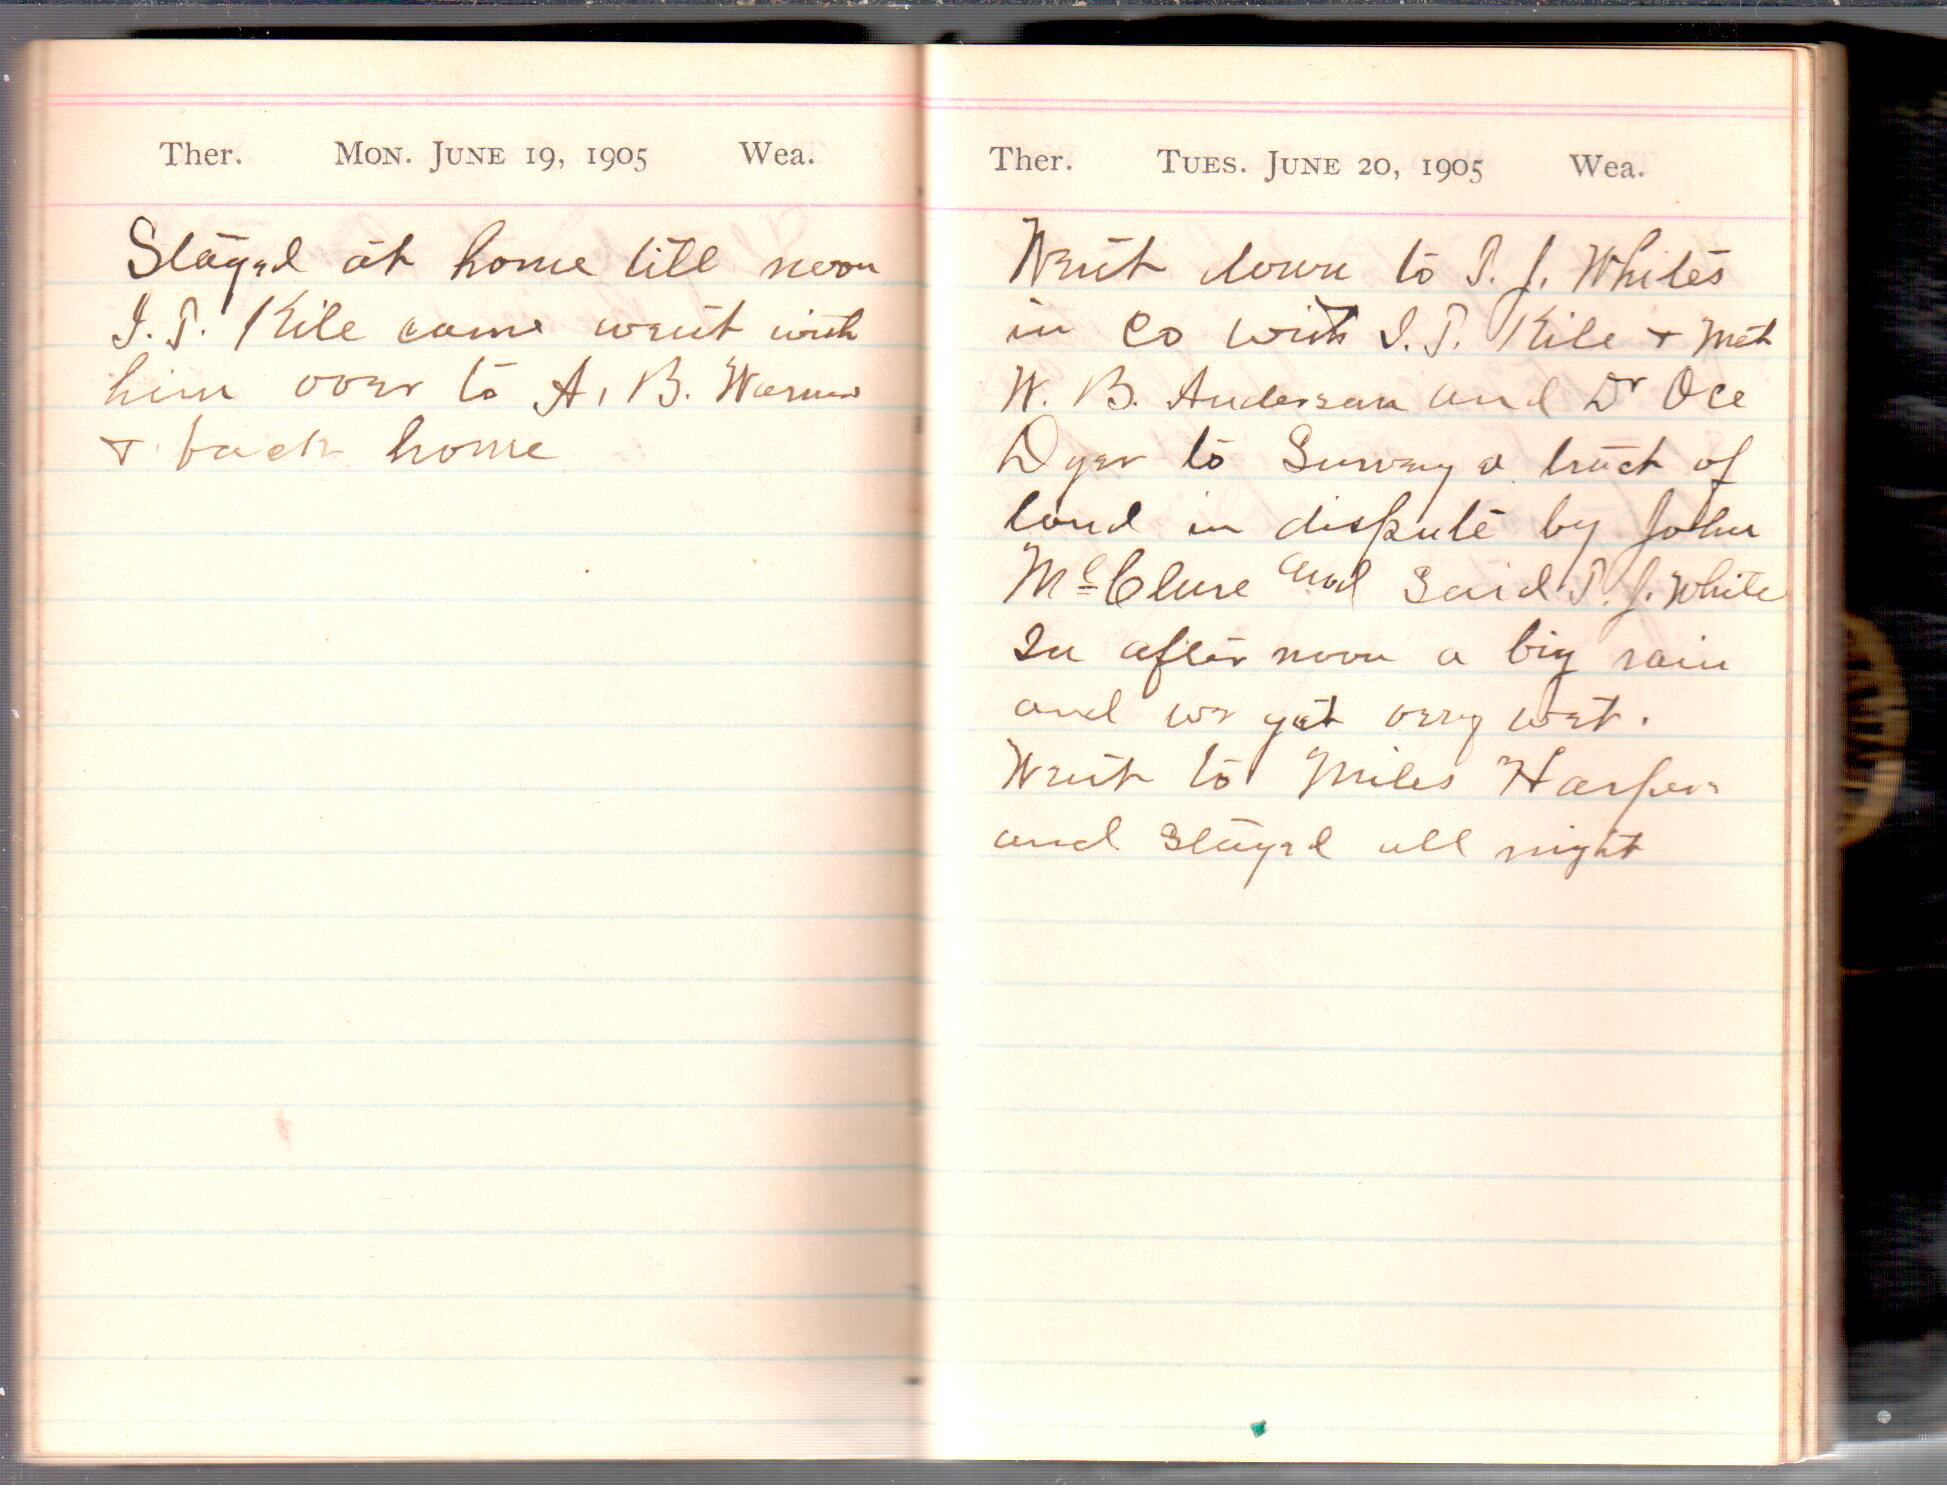 Ther. MON. JUNE 19, 1905 Wea.
Stayed at home till noon
I. T. Kile came went with
him over to A. B. Warner
& back home
Ther. TUES. JUNE 20, 1905 Wea.
Went down to T. J. Whites
in Co with I. T. Kile & Met
W. B. Anderson and Dr Oce
Dyer to Survey a tract of
land in dispute by John
McClure and Said T. J. White
In after noon a big rain
and we got very wet.
Went to Miles Harpers
and stayed all night